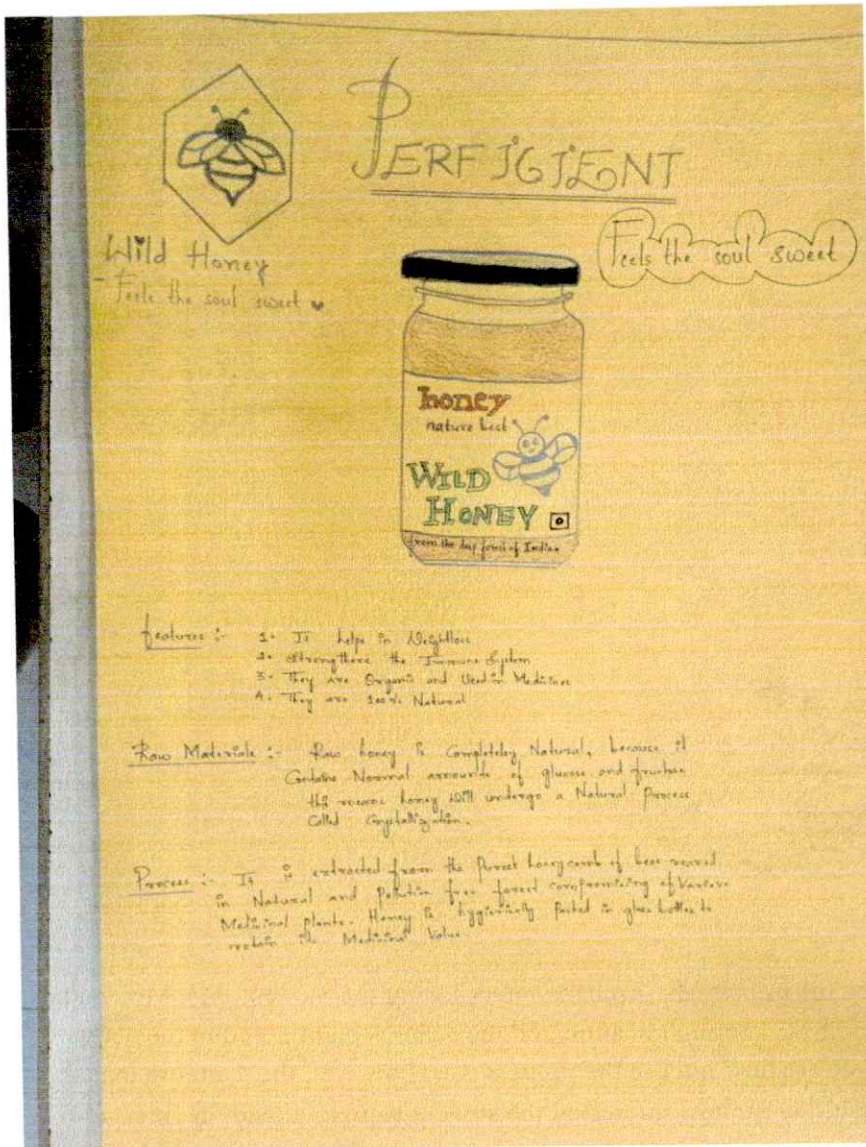 PERFICIENT
Wild Honey
- Feels the soul sweet
Feels the soul sweet
honey
nature best
WILD
HONEY
from the deep forest of Indian
features :-
1. It helps in Weightloss
2. Strengthens the Immune System
3. They are Organic and Used in Medicines
4. They are 100% Natural
Raw Materials :- Raw honey is Completeley Natural, because it
Contains Normal amounts of glucose and fructose
this means honey will undergo a Natural Process
Called Crystallization.
Process :- It is extracted from the Purest honeycomb of bees reared
in Natural and Pollution free forest compromising of Various
Medicinal plants. Honey is hygienically Packed in glass bottles to
retain its Medicinal Value